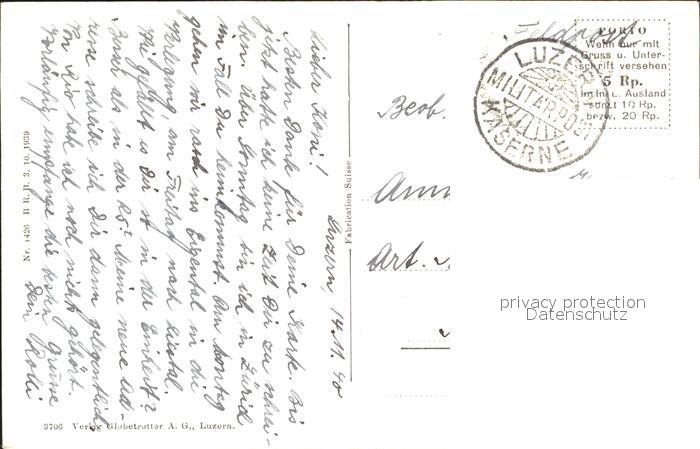 Luzern, 14.11.40
Lieber Köni!
Besten Dank für Deine Karte. Bis
jetzt hatte ich keine Zeit Dir zu schrei-
ben. Über Sonntag bin ich in Zürich
im Fall Du heimkommst. Am Montag
gehen wir rasch ins Eigental in die
Verlegung, am Freitag nach Liestal.
Wie gefällt es Dir ist in der Einheit?
Besser als in der RS? Meine neue Ad-
resse schreibe ich Dir dann gelegentlich.
Von Dir hab ich noch nicht gehört.
Vorläufig empfange die besten Grüsse
Dein Rolli
Nr. 1426 B R B 3. 10. 1939
3706 Verlag Globetrotter A. G., Luzern.
Fabrication Suisse
Feldpost
PORTO
Wenn nur mit
Gruss u. Unter-
schrift versehen
5 Rp.
im In- u. Ausland
sonst 10 Rp.
bezw. 20 Rp.
LUZERN
MILITÄRPOST
KASERNE
Beob.
Art.
privacy protection
Datenschutz